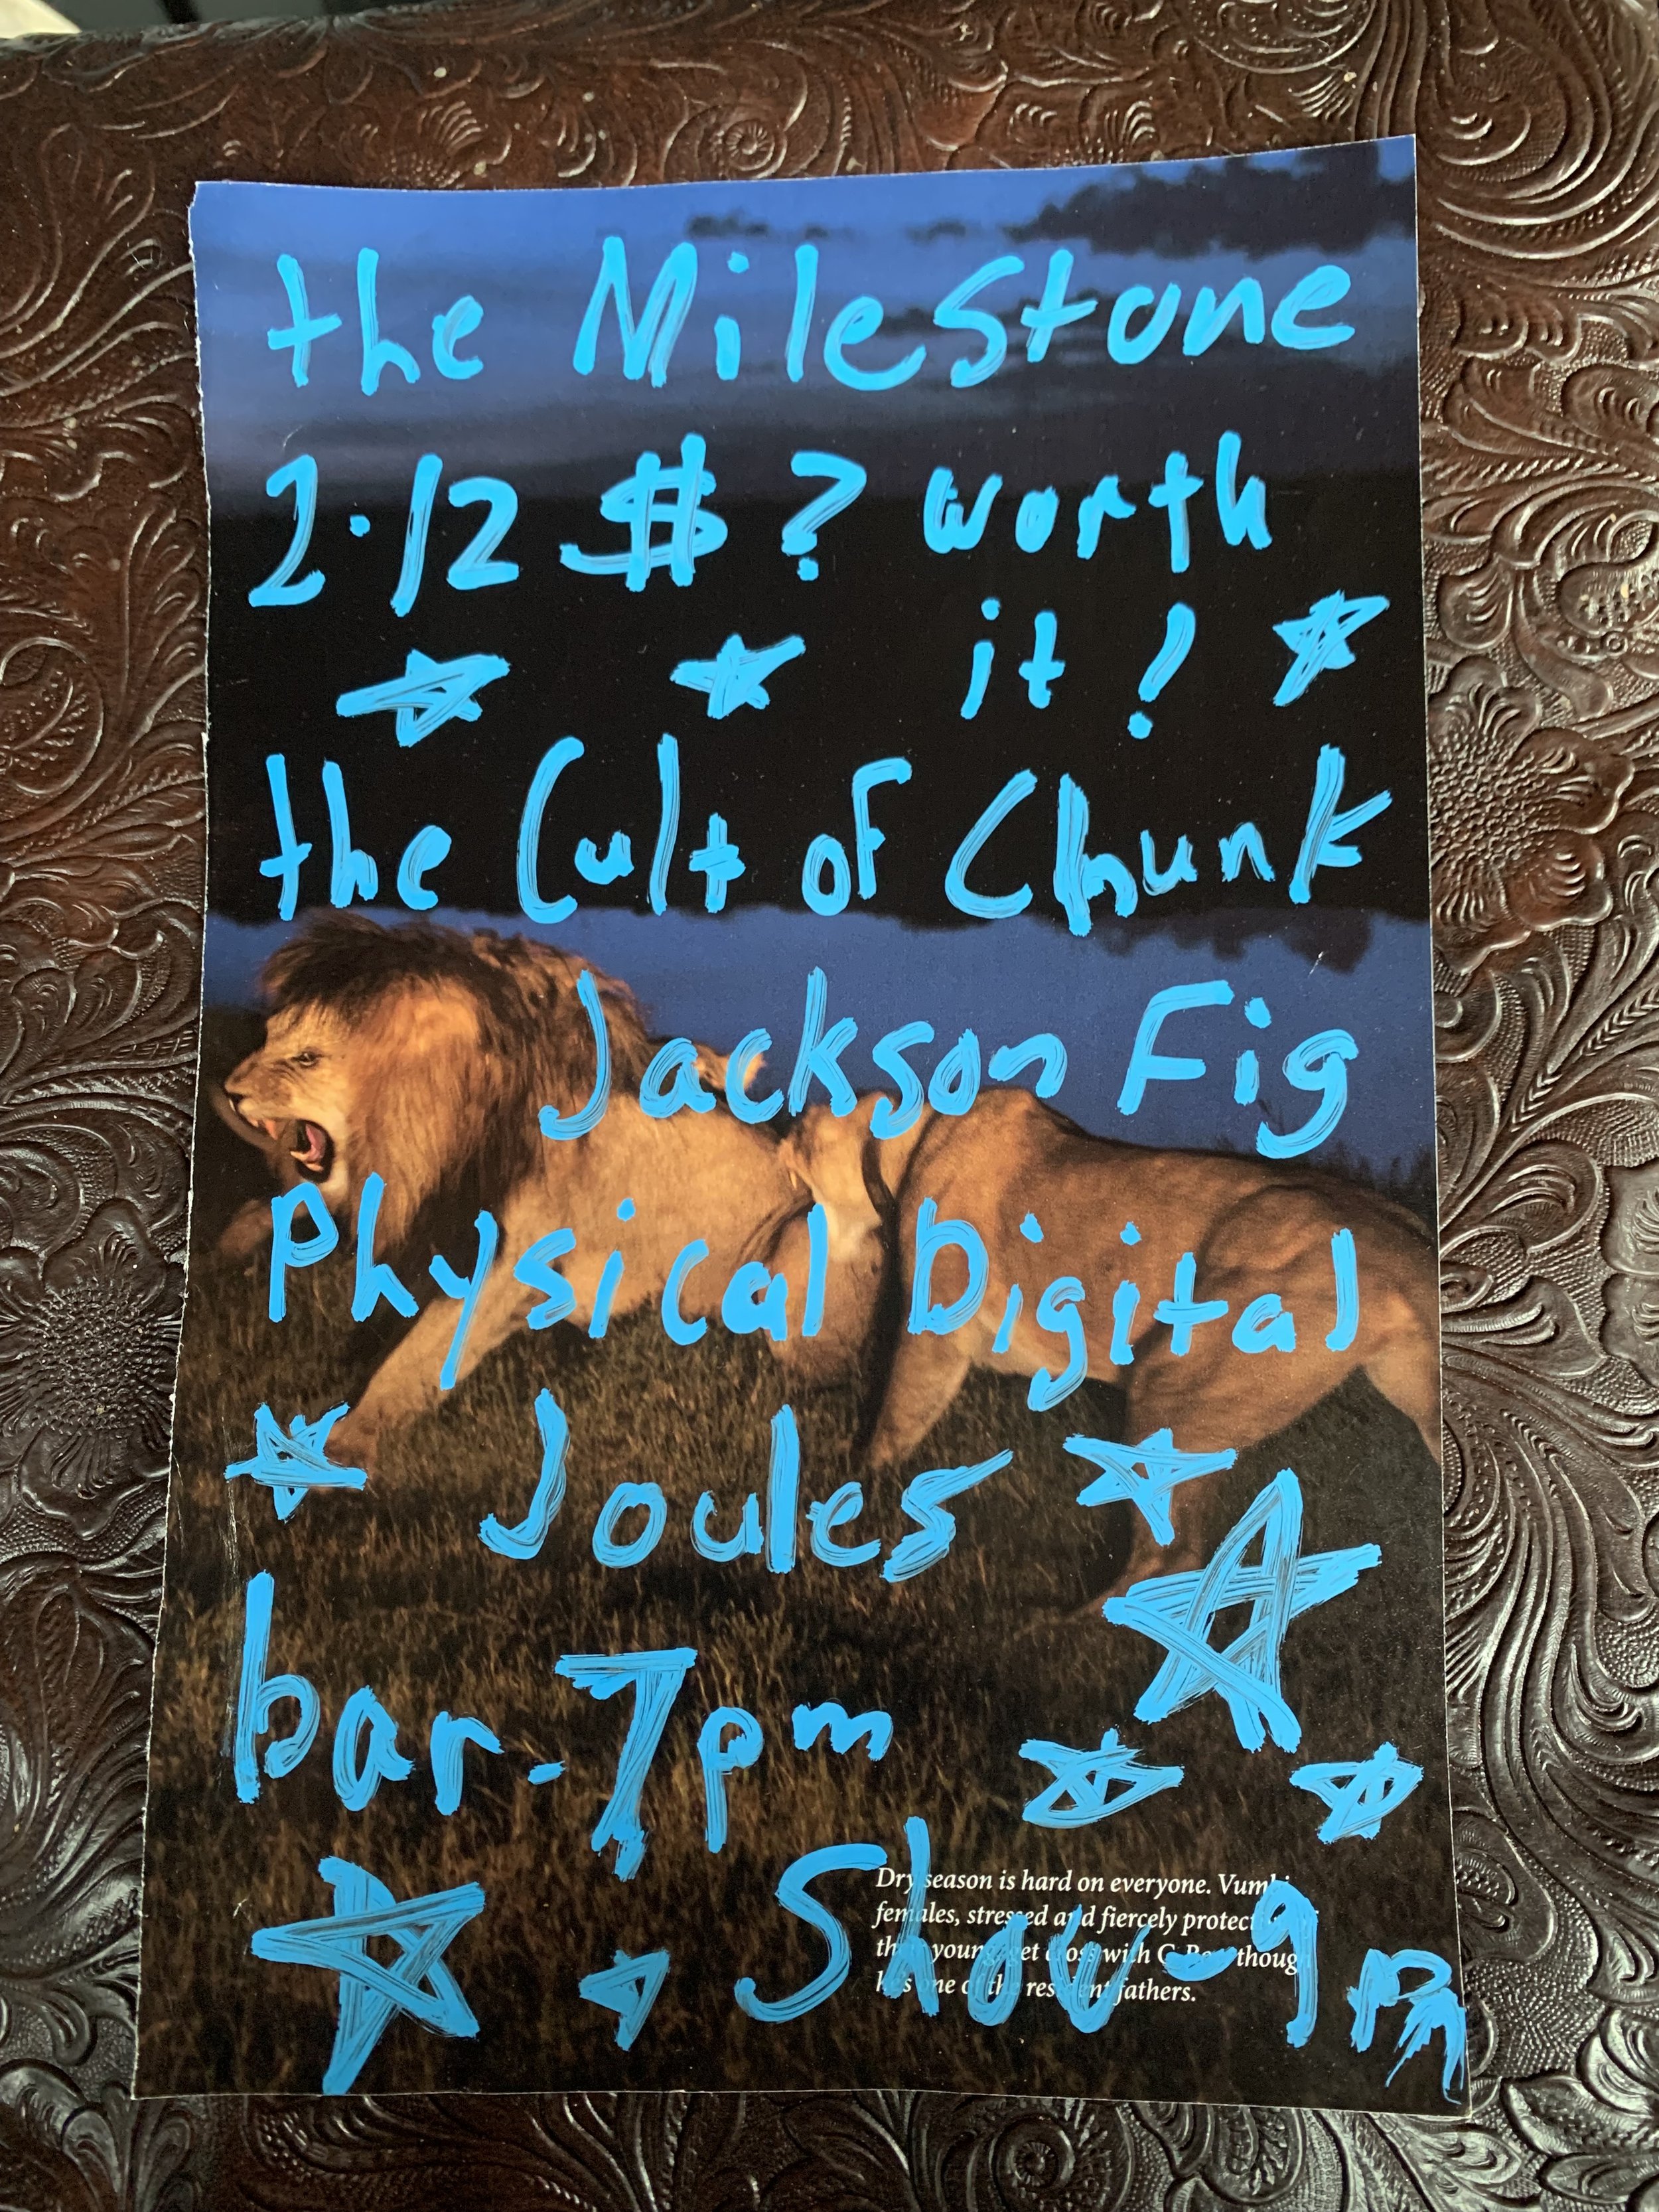 the Milestone
2.12 $ ? worth
it !
the Cult of Chunk
Jackson Fig
Physical Digital
Joules
bar-7pm
Show-9pm
Dry season is hard on everyone. Vumbi
females, stressed and fiercely protect
young, get cross with C-Boy though
one of the resident fathers.